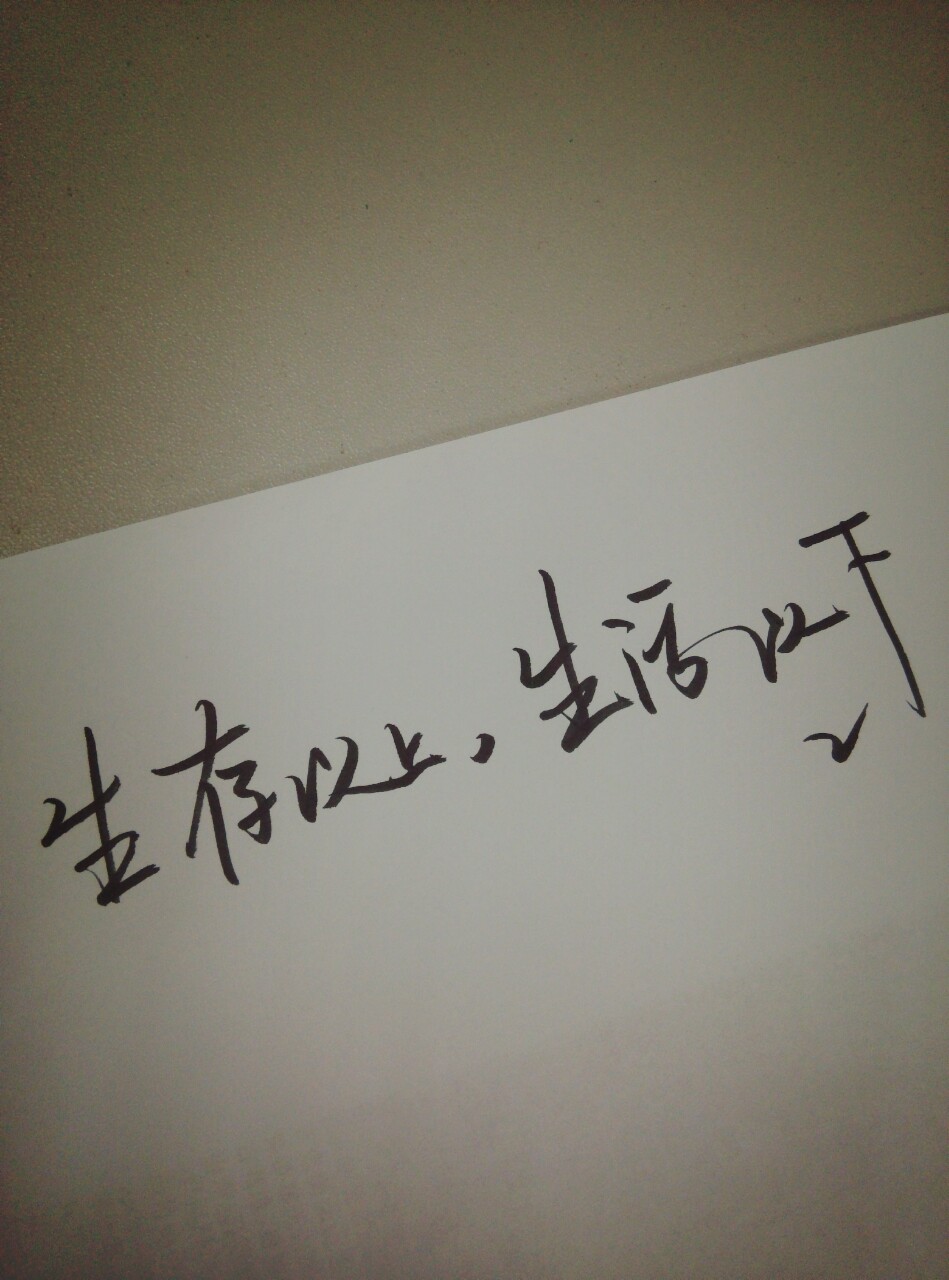 生存以上,生活以下